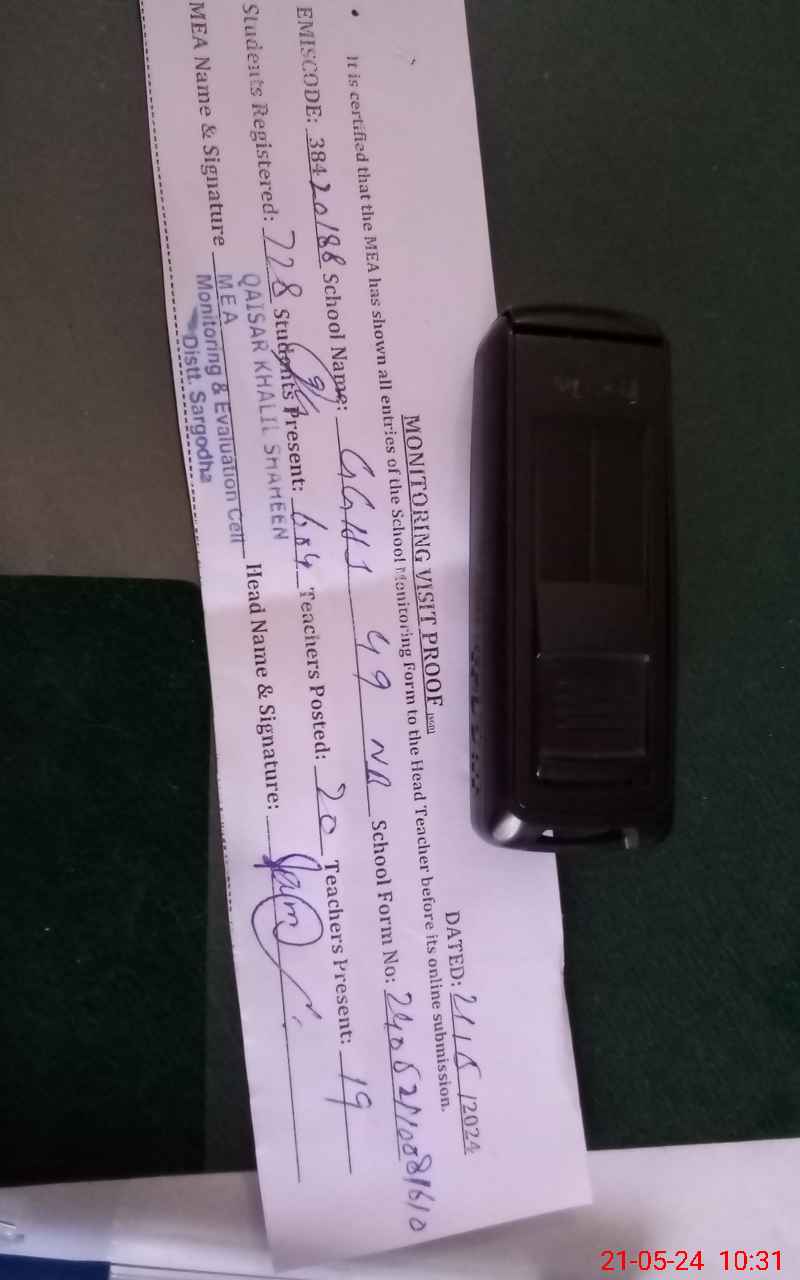 MONITORING VISIT PROOF
DATED: 21/5/2024
• It is certified that the MEA has shown all entries of the School Monitoring Form to the Head Teacher before its online submission.
EMISCODE: 38420188 School Name: GGHS 49 NB School Form No:
Students Registered: 728 Students Present: 684 Teachers Posted: 20 Teachers Present: 19
MEA Name & Signature Head Name & Signature:
QAISAR KHALIL SHAHEEN
MEA
Monitoring & Evaluation Cell
Distt. Sargodha
21-05-24 10:31